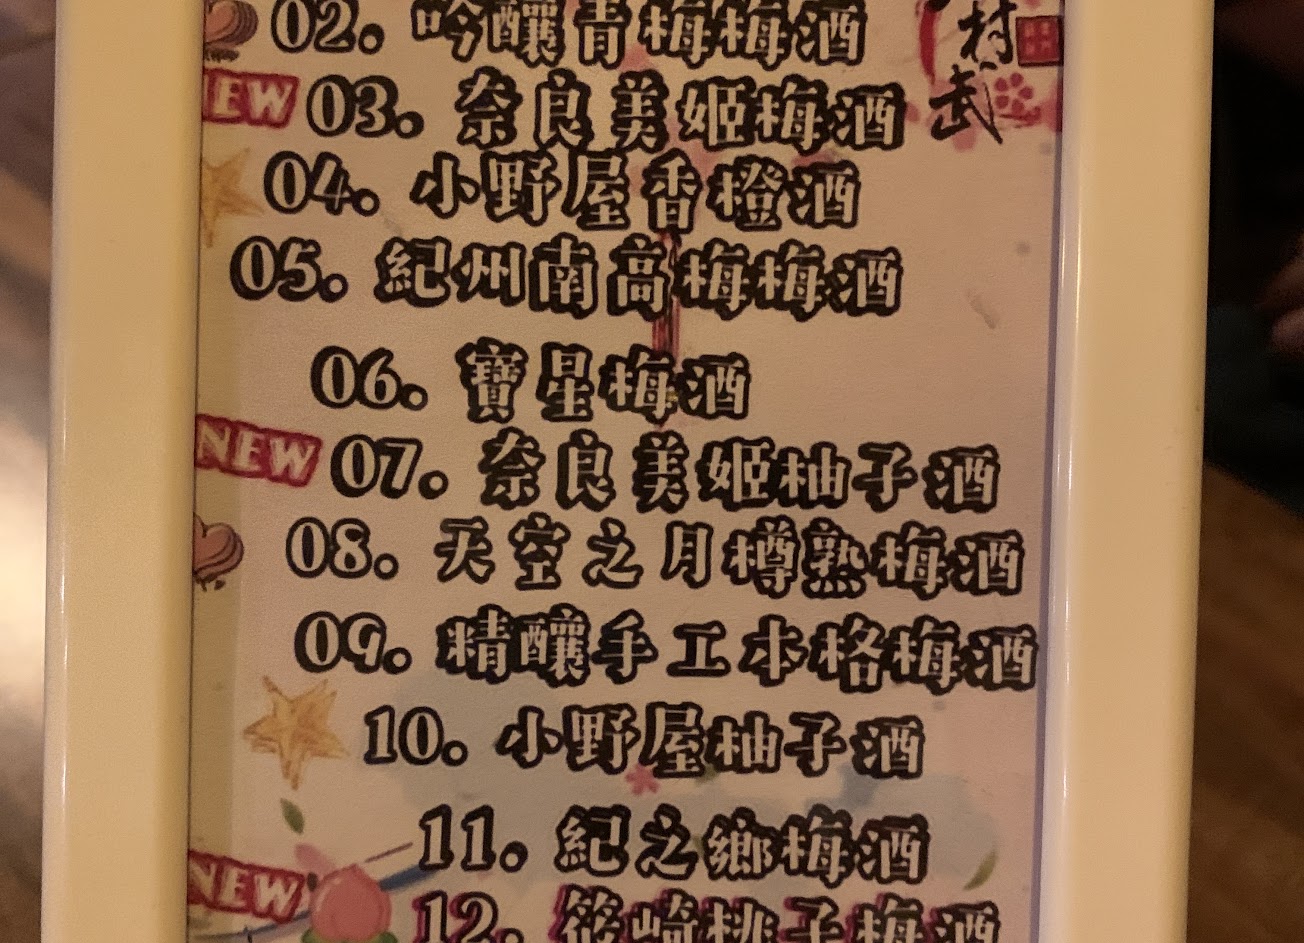 02. 吟釀青梅梅酒
村
武
NEW 03. 奈良美姬梅酒
04. 小野屋香橙酒
05. 紀州南高梅梅酒
06. 寶星梅酒
NEW 07. 奈良美姬柚子酒
08. 天空之月樽熟梅酒
09. 精釀手工本格梅酒
10. 小野屋柚子酒
11. 紀之鄉梅酒
NEW 12. 篠崎桃子梅酒